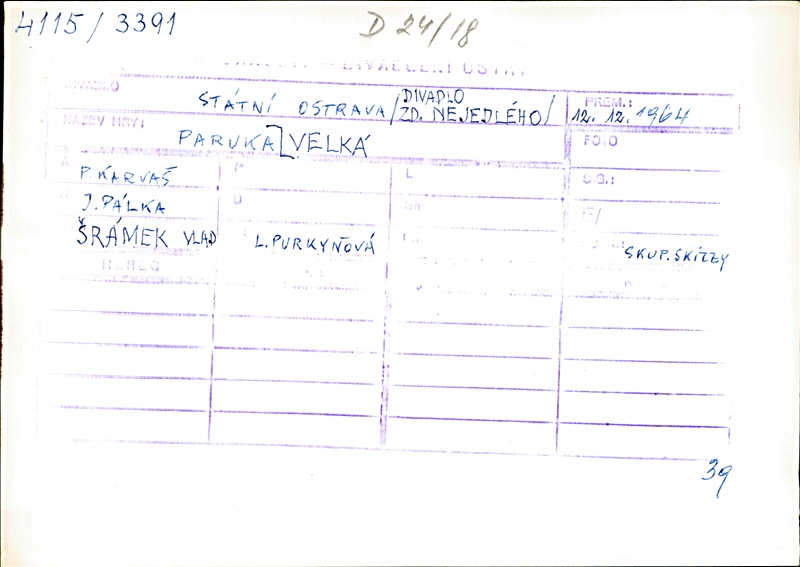 4115/3391
D 24/18
DIVADLO
STÁTNÍ OSTRAVA/DIVADLO ZD. NEJEDLÉHO/
PREM.:
12. 12. 1964
NÁZEV HRY:
PARUKA] VELKÁ
FOTO
A
P. KARVAŠ
L
J. PÁLKA
ŠRÁMEK VLAD
L. PURKYŇOVÁ
SKUP. SKIZZY
HEREC
39